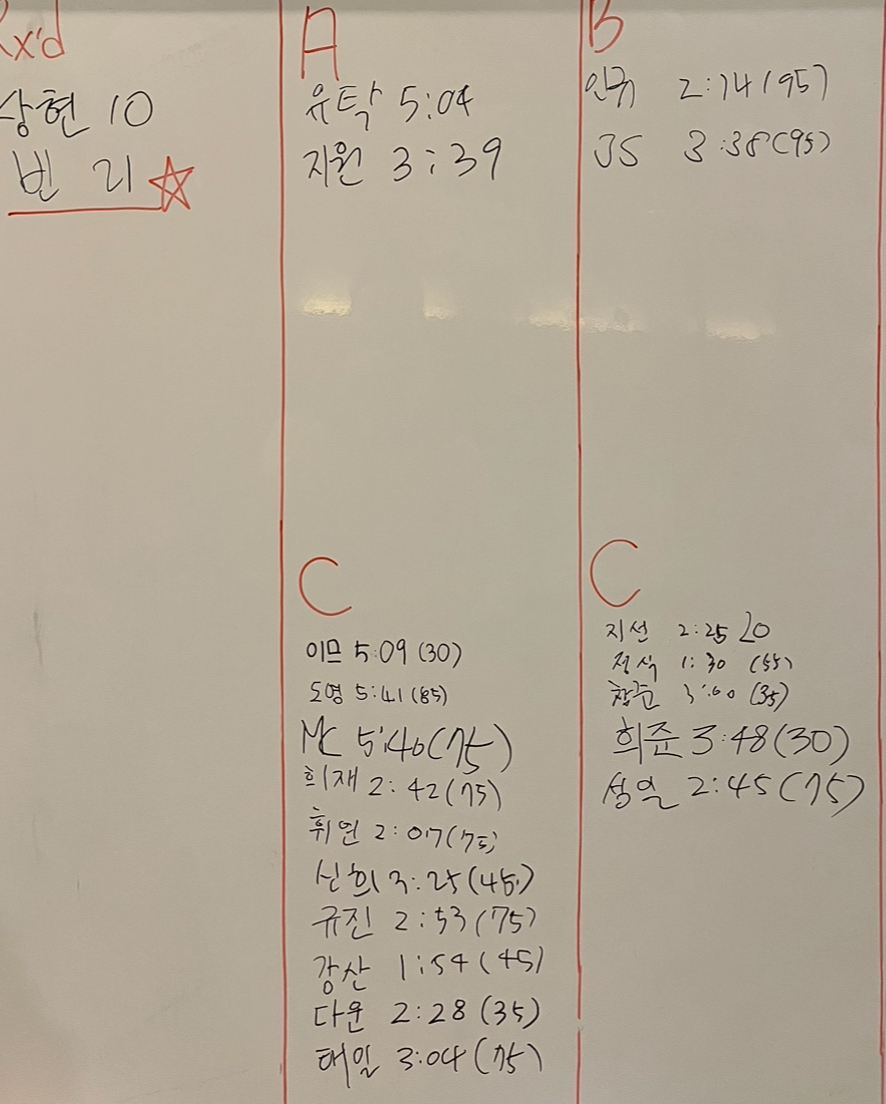 Rx'd
상현 10
빈 21
A
유탁 5:04
지원 3:39
B
인규 2:14(95)
JS 3:38(95)
C
이므 5:09 (30)
도영 5:41 (85)
MC 5:40(75)
희재 2:42(75)
휘연 2:07(75)
신희 3:25(45)
규진 2:53(75)
강산 1:54(45)
다운 2:28(35)
태일 3:04(75)
C
지선 2:25 20
정식 1:30 (55)
창준 3:00 (35)
희준 3:48(30)
성일 2:45(75)